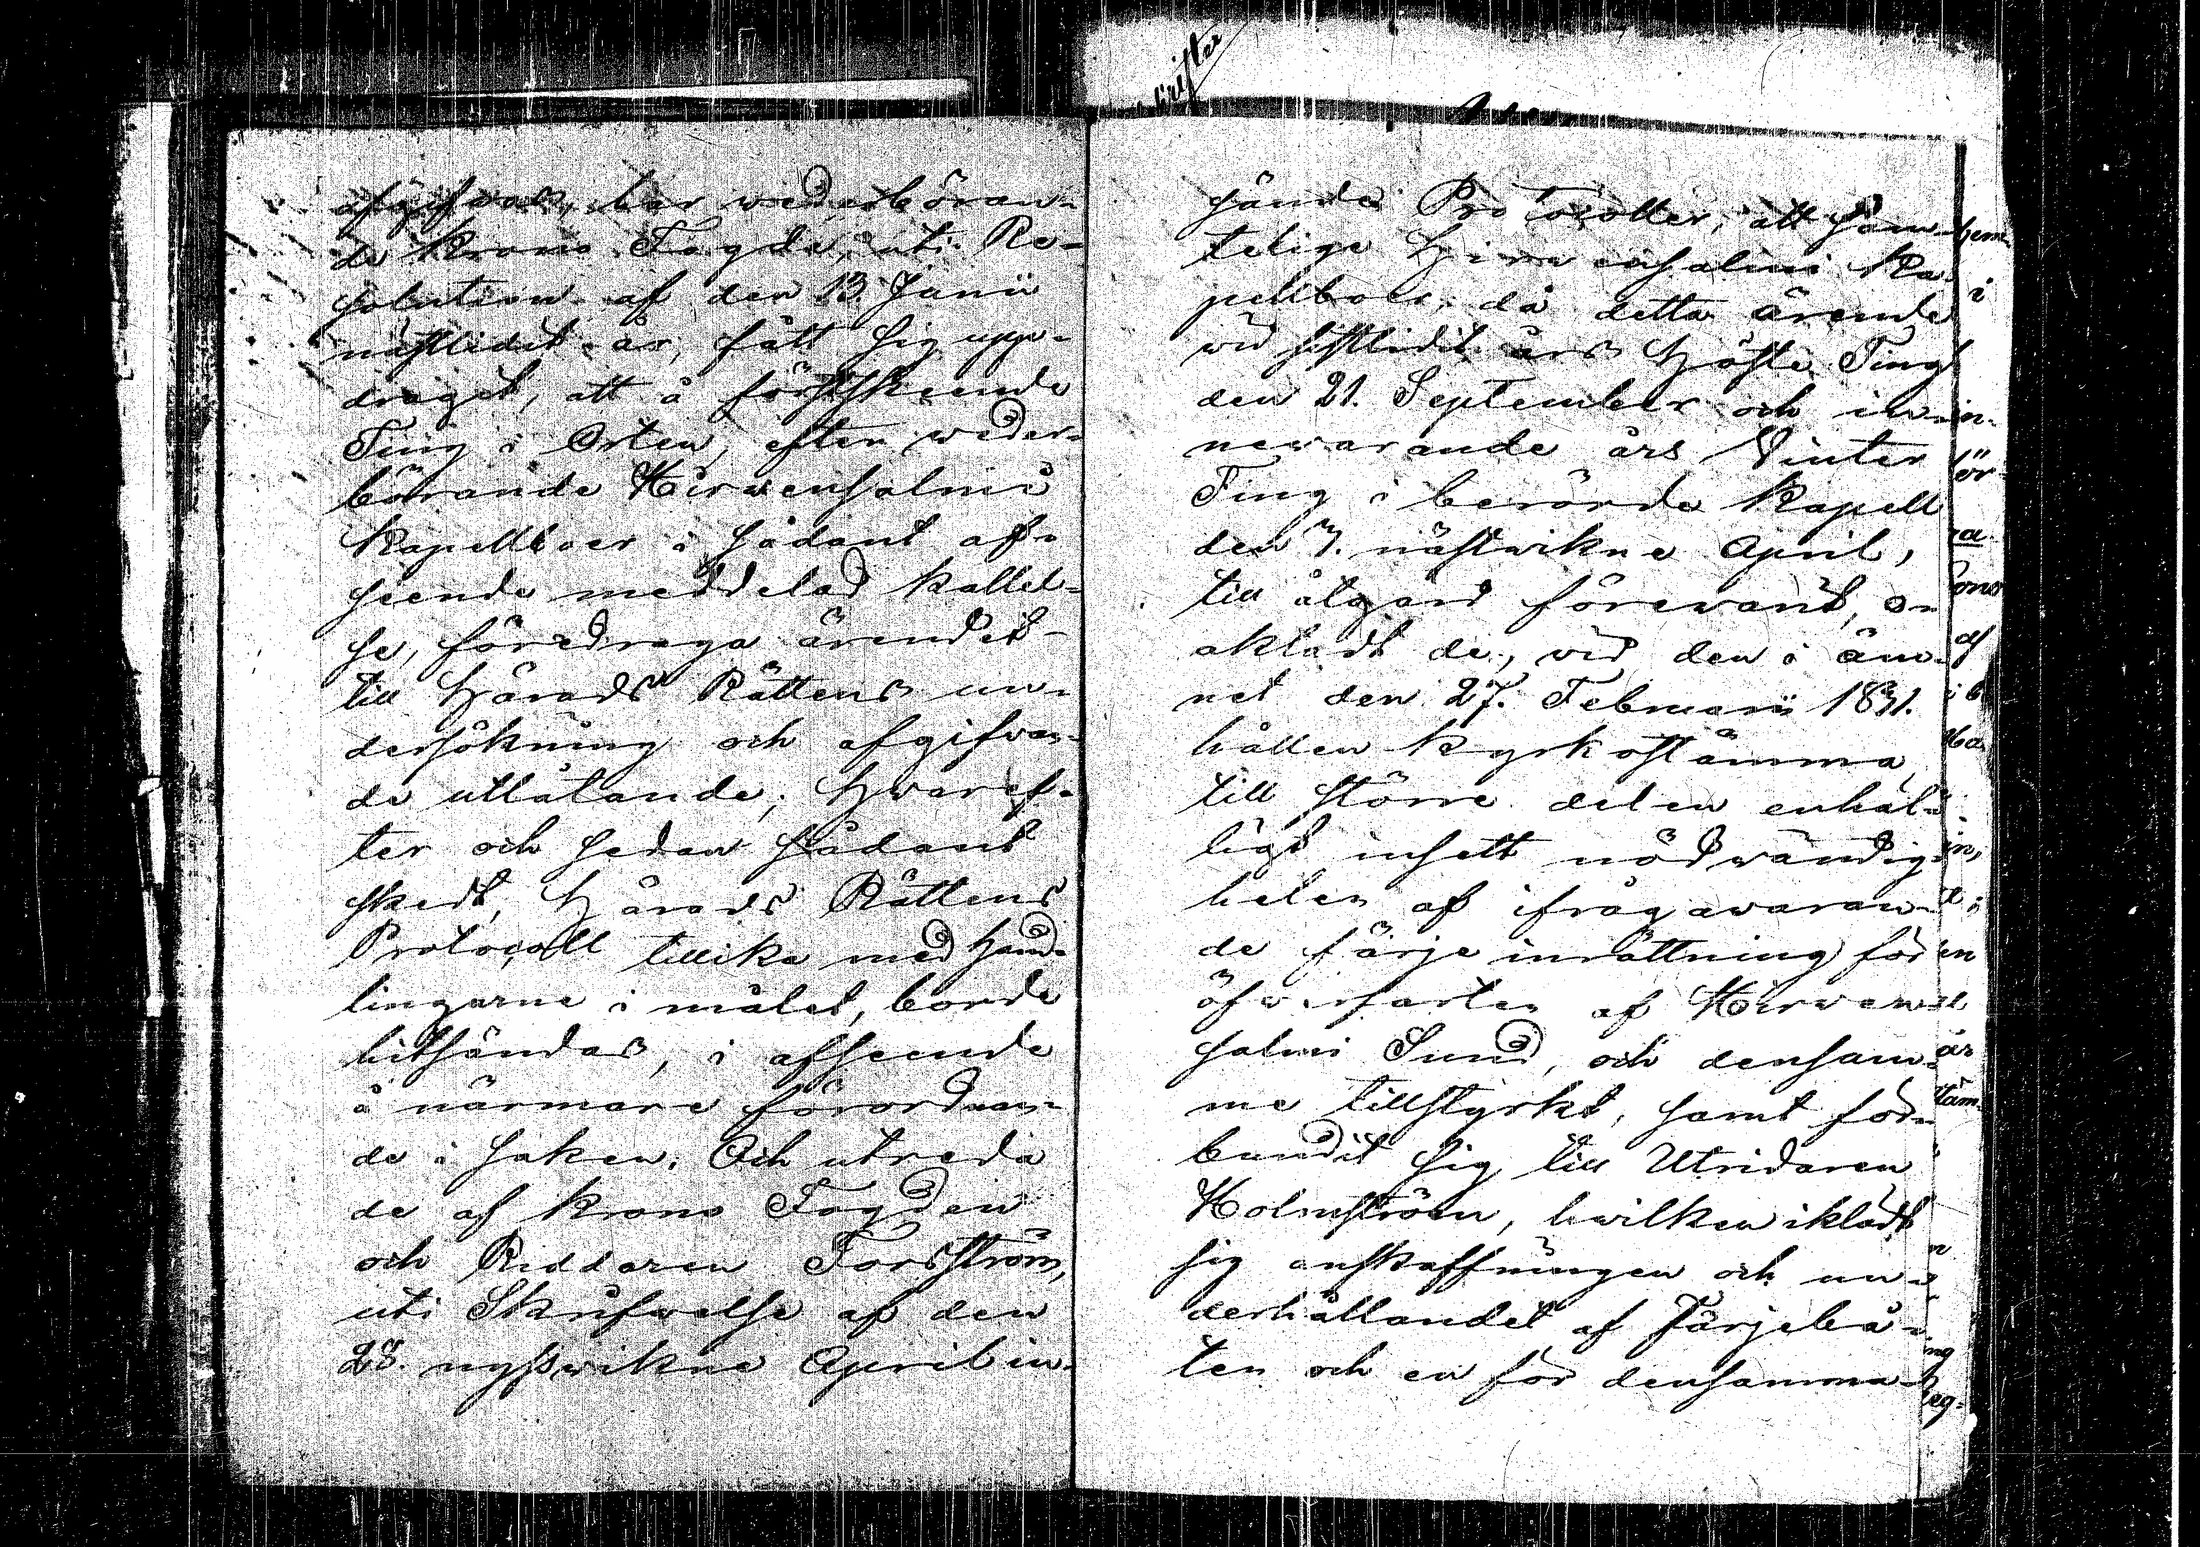 afgifwas, har wederböran-
de Krono Fogde, uti Re-
solution af den 13. Junii
nästledit år, fått sig upp-
draget, att å förstskeende
Ting i Orten, efter weder-
börande Hirwensalmi
Kapellboer i sådant af-
seende meddelad kallel-
se, föredraga ärendet
till Härads Rättens un-
dersökning och afgifwan-
de utlåtande; hwaref-
ter och sedan sådant
skedt, Härads Rättens
Protocoll tillika med hand-
lingarne i målet, borde
hitsändas, i afseende
å närmare förordnan-
de i saken. Och utreda
de af Krono Fogden
och Riddaren Forsström,
uti Skrifwelse af den
28. nysswikne April in-
sände Protocoller, att sam-
telige Hirwensalmi Ka-
pellboer, då detta ärende
wid sistledit års Höste Ting
den 21. September och in-
newarande års Vinter
Ting i berörde Kapell
den 7. nästwikne April,
till åtgärd förewarit, o-
akladt de, vid den i äm-
net den 27. Februarii 1831.
hållen kyrkostämma
till större delen enhäl-
ligt insett nödwändig-
heten af ifrågawaran-
de färje inrättning för
öfwerfarten af Hirwen-
salmi Sund, och densam-
me tillstyrkt, samt för-
bundit sig till Utridaren
Holmström, hwilken ikladt
sig anskaffningen och un-
derhållandet af Färjebå-
ten och en för densamma